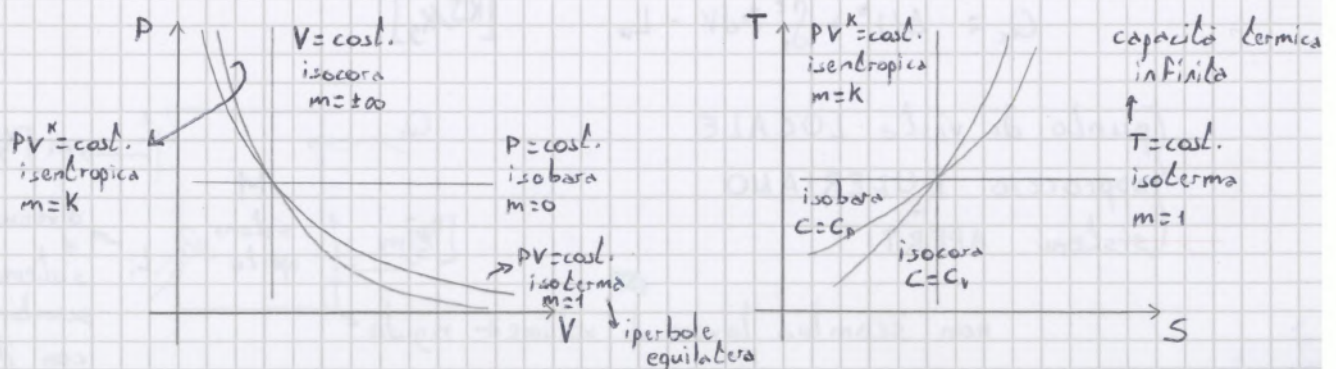 P
V=cost.
isocora
m=±∞
PV^K=cost.
isentropica
m=K
P=cost.
isobara
m=0
PV=cost.
isoterma
m=1
iperbole
equilatera
V
T
PV^K=cost.
isentropica
m=K
capacità termica
infinita
T=cost.
isoterma
m=1
isobara
C=Cp
isocora
C=Cv
S